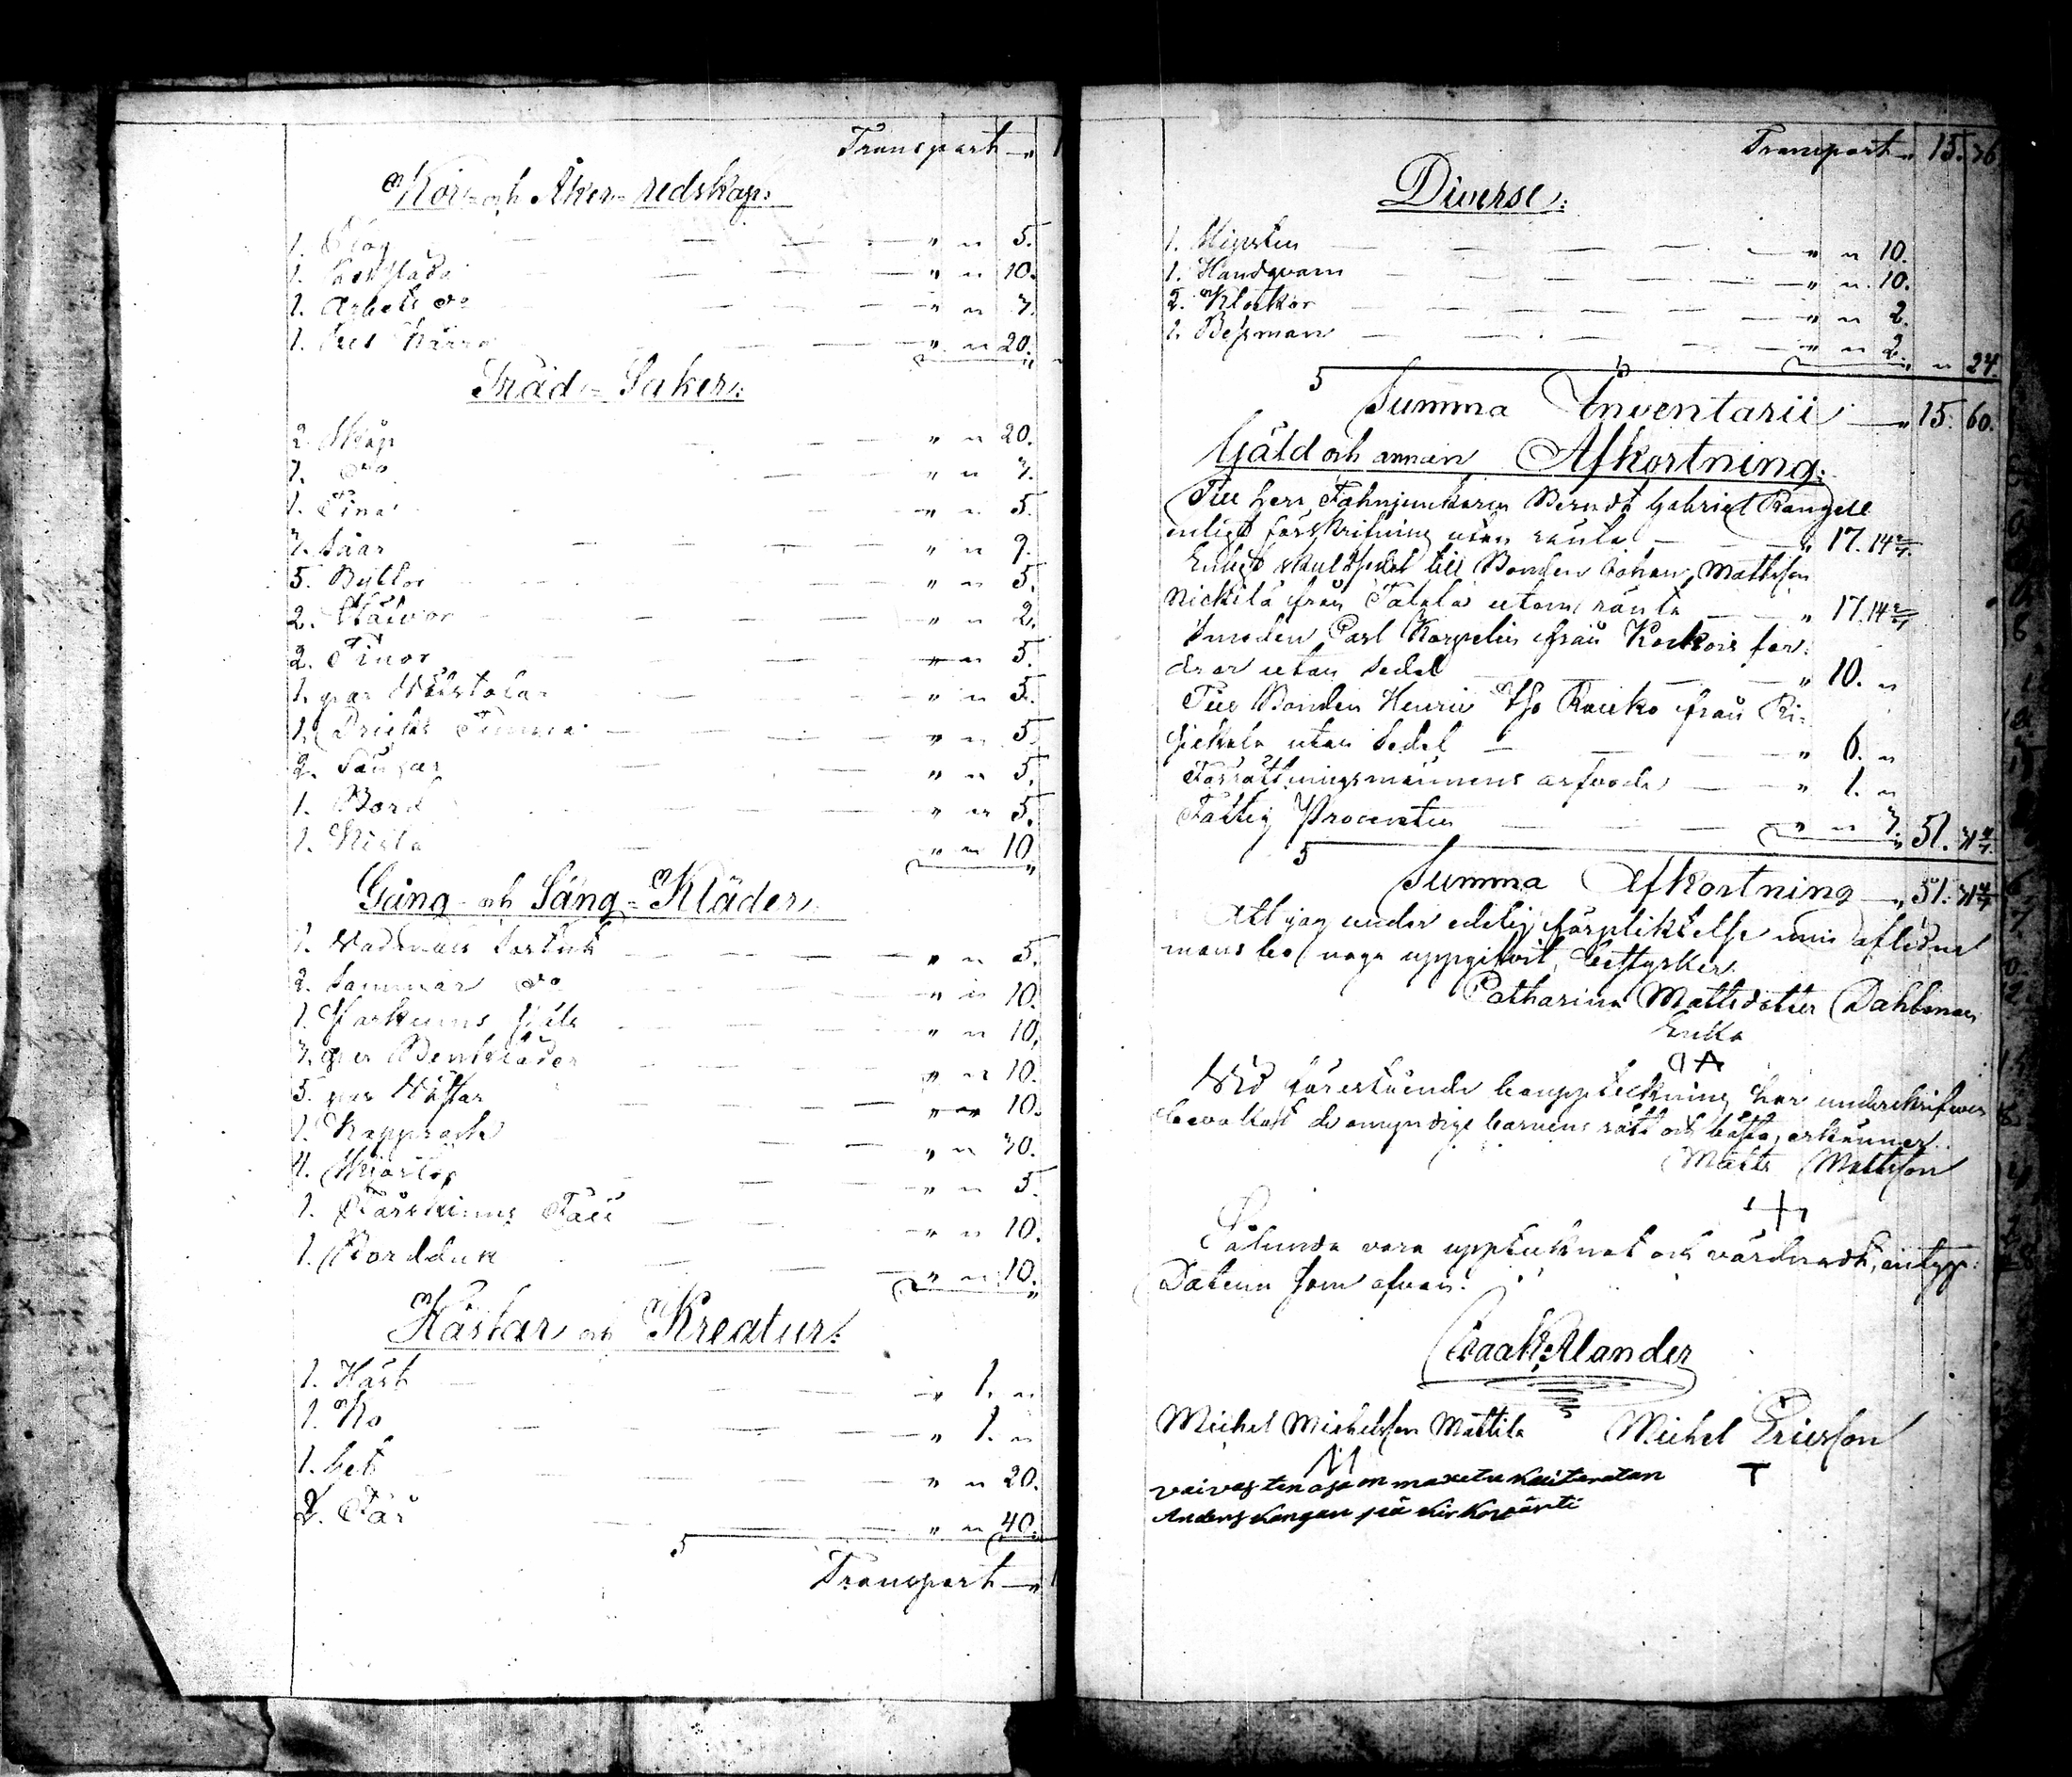 Transport
Kör och Åker-redskap:
1. Plog " " 5.
1. " " 10.
1. Arbets do " " 7.
1. Kärra " " 20.
Träd-Saker:
2. Skåp " " 20.
1. do " " 7.
1. Tina " " 5.
7. Såar " " 9.
5. Byttor " " 5.
2. " " 2.
2. Tinor " " 5.
1. par Wäfstolar " " 5.
1. Dricks Tunna " " 5.
2. " " 5.
1. Bord " " 5.
1. Kista " " 10.
Gång- och Säng-Kläder:
1. Vadmals " " 5.
2. Sommar do " " 10.
1. " " 10.
3. par Benkläder " " 10.
5. par " " 10.
1. Kapprock " " 30.
4. Skjortor " " 5.
1. Fårskinns Fäll " " 10.
1. Bordduk " " 10.
Hästar och Kreatur:
1. Häst " 1. "
1. Ko " 1. "
1. Get " " 20.
2. Får " " 40.
Transport
Transport " 15. 36
Diverse:
1. Slipsten " " 10.
1. Handqvarn " " 10.
2. Klockor " " 2.
1. Bessman " " 2. " 24.
Summa Inventarii " 15. 60.
Gäld och annan Afkortning:
Till Herr Fahnjunkaren Berndt Gabriel Rangell
enligt förskrifning utan ränta " 17. 14 2/7.
Enligt skuldsedel till Bonden Johan Mattsson
Nickilä från Talala utom ränta " 17. 14 2/7
Smeden Carl Korpelin från for:
drar utan Sedel " 10. "
Till Bonden Henric från Ri:
utan Sedel " 6. "
Förrättningsmännens arfvode " 1. "
Fattig Procenten " " 3. 51. 31 4/7.
Summa Afkortning " 51. 31 4/7
Att jag under edelig förpliktelse min aflidne
mans bo noga uppgifvit, bestyrker
Catharina Mattsdotter Dahlman
Enka
Wid förestående bouppteckning har underskrifven
bevakat de omyndige barnens rätt och bästa, erkänner
Matts Mattsson
Sålunda vara upptecknat och värderadt, intyga:
Datum som ofvan.
Isaak Alander
Michel Michelsson Mattila Michel Ericsson
vaivasten osa on maxettu kuiteratan
Anders Kangan pää kirkowärti